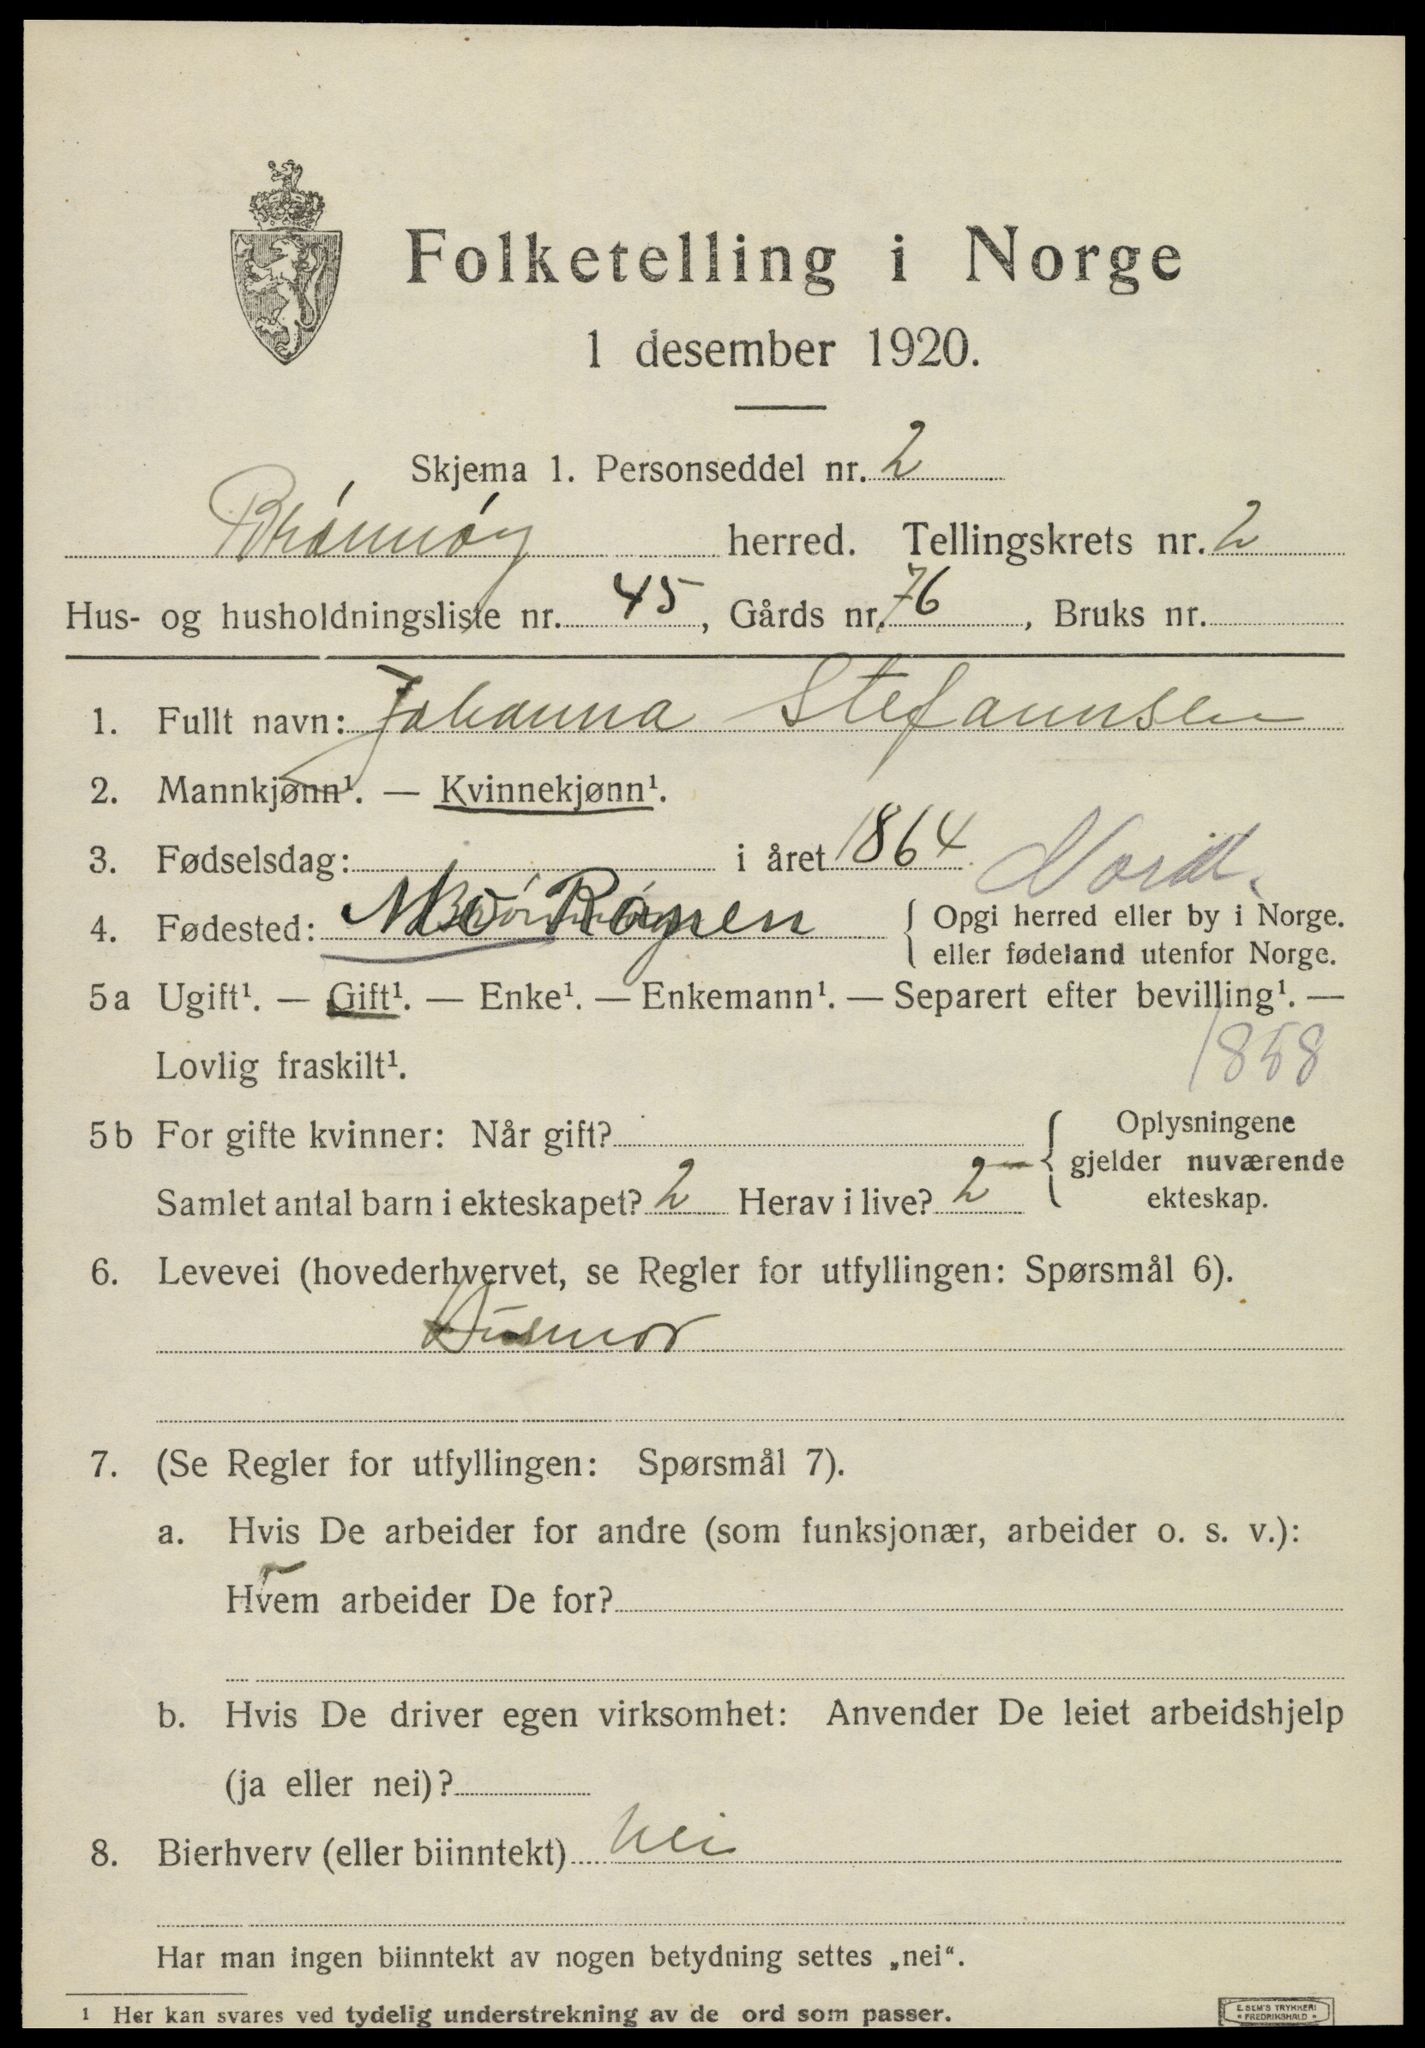 Folketelling i Norge
1 desember 1920.
Skjema 1. Personseddel nr. 2
Brønnøy herred. Tellingskrets nr. 2
Hus- og husholdningsliste nr. 45, Gårds nr. 76, Bruks nr.
1. Fullt navn: Johanna Stefannsen
2. Mannkjønn¹. — Kvinnekjønn¹.
3. Fødselsdag: i året 1864
Nord.
4. Fødested: Mo { Opgi herred eller by i Norge.
eller fødeland utenfor Norge.
5a Ugift¹. — Gift¹. — Enke¹. — Enkemann¹. — Separert efter bevilling¹. —
Lovlig fraskilt¹.
1858
5b For gifte kvinner: Når gift? { Oplysningene
gjelder nuværende
ekteskap.
Samlet antal barn i ekteskapet? 2 Herav i live? 2
6. Levevei (hovederhvervet, se Regler for utfyllingen: Spørsmål 6).
Husmor
7. (Se Regler for utfyllingen: Spørsmål 7).
a. Hvis De arbeider for andre (som funksjonær, arbeider o. s. v.):
Hvem arbeider De for?
b. Hvis De driver egen virksomhet: Anvender De leiet arbeidshjelp
(ja eller nei)?
8. Bierhverv (eller biinntekt) Nei
Har man ingen biinntekt av nogen betydning settes „nei“.
¹ Her kan svares ved tydelig understrekning av de ord som passer.
E. SEM'S TRYKKERI
* FREDRIKSHALD *